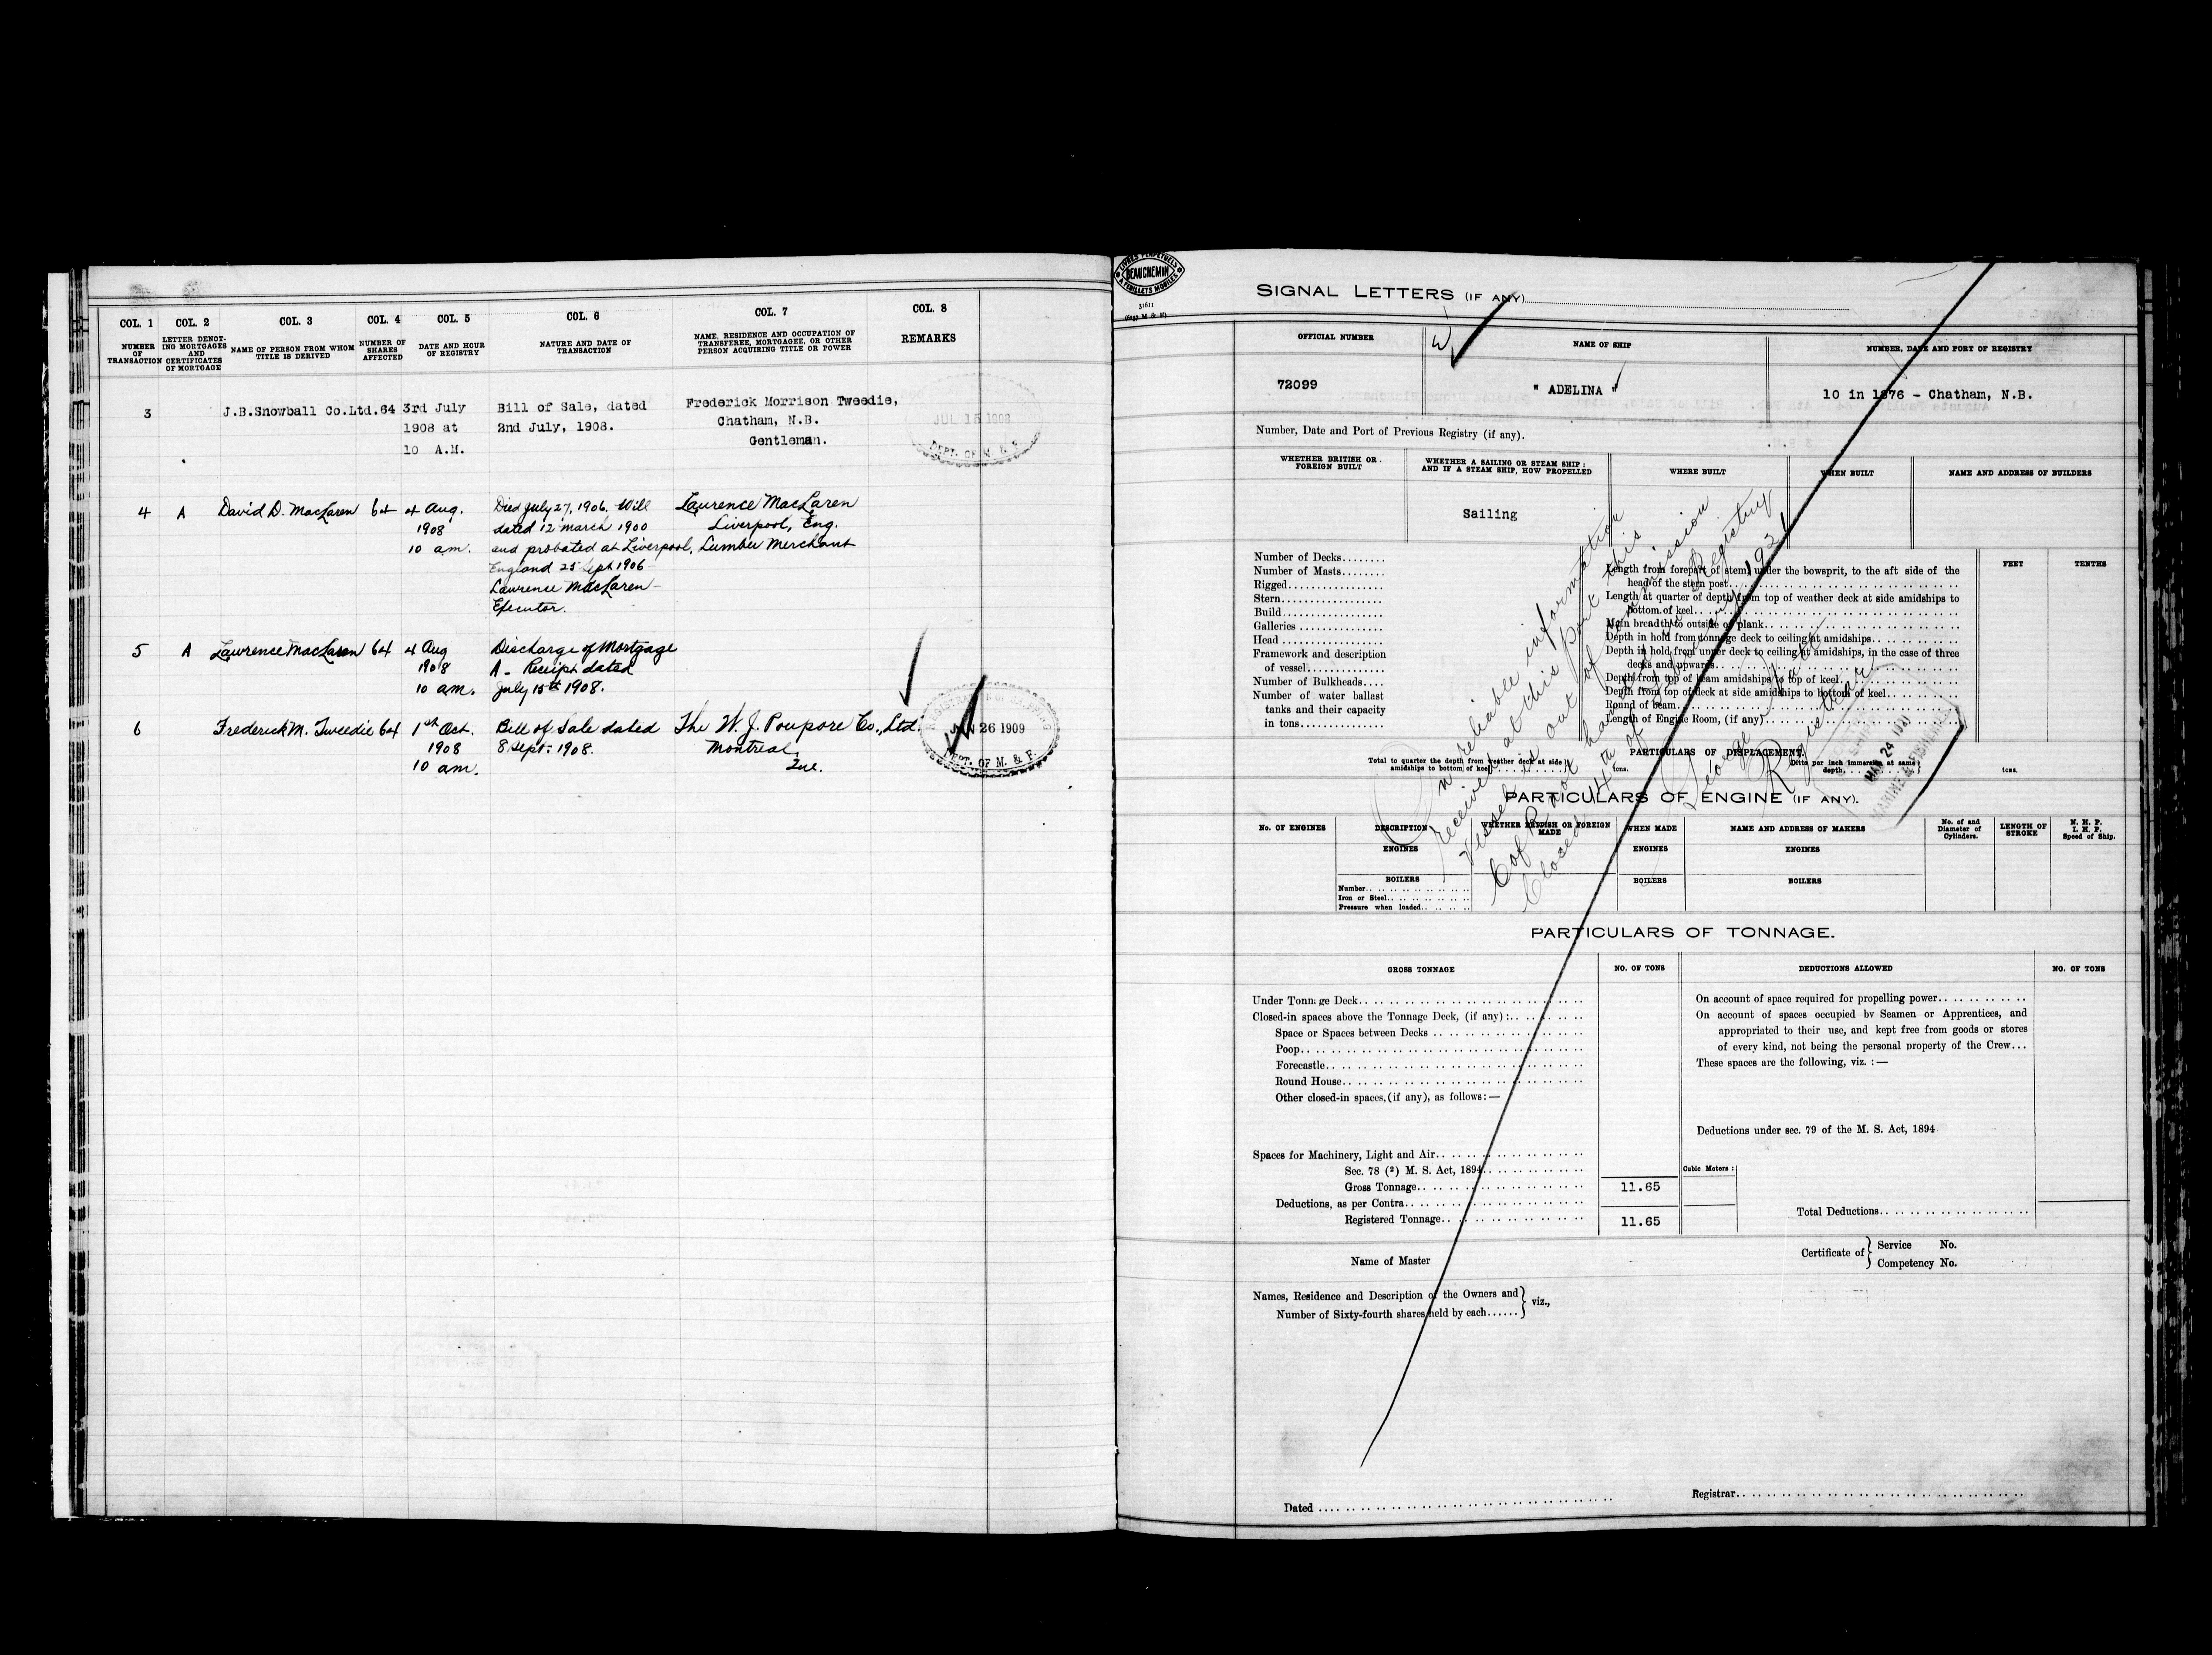 COL. 1 COL. 2 COL. 3 COL. 4 COL. 5 COL. 6 COL. 7 COL. 8
NUMBER OF TRANSACTION
LETTER DENOT-ING MORTGAGES AND CERTIFICATES OF MORTGAGE
NAME OF PERSON FROM WHOM TITLE IS DERIVED
NUMBER OF SHARES AFFECTED
DATE AND HOUR OF REGISTRY
NATURE AND DATE OF TRANSACTION
NAME, RESIDENCE AND OCCUPATION OF TRANSFEREE, MORTGAGEE, OR OTHER PERSON ACQUIRING TITLE OR POWER
REMARKS
3 J.B.Snowball Co.Ltd. 64 3rd July Bill of Sale, dated Frederick Morrison Tweedie,
1908 at 2nd July, 1908. Chatham, N.B.
10 A.M. Gentleman.
JUL 15 1908
DEPT. OF M. & F.
4 A David D. MacLaren 64 4 Aug. Died July 27, 1906. Will Laurence MacLaren
1908 dated 12 March 1900 Liverpool, Eng.
10 am. and probated at Liverpool, Lumber Merchant
England 25 Sept 1906
Lawrence MacLaren -
Executor.
5 A Lawrence MacLaren 64 4 Aug Discharge of Mortgage
1908 A - Receipt dated
10 am. July 15th 1908.
6 Frederick M. Tweedie 64 1st Oct. Bill of Sale dated The W. J. Poupore Co., Ltd.
1908 8 Sept. 1908. Montreal,
10 am. Que.
JAN 26 1909
DEPT. OF M. & F.
LIVRES PERPETUELS
BEAUCHEMIN
A FEUILLETS MOBILES
31611
(6237 M & F)
SIGNAL LETTERS (IF ANY)
OFFICIAL NUMBER NAME OF SHIP NUMBER, DATE AND PORT OF REGISTRY
72099 " ADELINA " 10 in 1876 - Chatham, N.B.
Number, Date and Port of Previous Registry (if any).
WHETHER BRITISH OR FOREIGN BUILT
WHETHER A SAILING OR STEAM SHIP; AND IF A STEAM SHIP, HOW PROPELLED
WHERE BUILT
WHEN BUILT
NAME AND ADDRESS OF BUILDERS
Sailing
Number of Decks........
Number of Masts........
Rigged..................
Stern...................
Build...................
Galleries................
Head...................
Framework and description
of vessel..............
Number of Bulkheads....
Number of water ballast
tanks and their capacity
in tons................
FEET TENTHS
Length from forepart of stem, under the bowsprit, to the aft side of the
head of the stern post
Length at quarter of depth from top of weather deck at side amidships to
bottom of keel
Main breadth to outside of plank
Depth in hold from tonnage deck to ceiling at amidships
Depth in hold from upper deck to ceiling at amidships, in the case of three
decks and upwards
Depth from top of beam amidships to top of keel
Depth from top of deck at side amidships to bottom of keel
Round of beam
Length of Engine Room, (if any)
No reliable information
received at this port this
vessel is out of commission
C of R not handed in Registry
Closed 14th of 1921
George
Registrar
MAR 24 1921
MARINE & FISHERIES
PARTICULARS OF DISPLACEMENT.
Total to quarter the depth from weather deck at side
amidships to bottom of keel tons.
Ditto per inch immersion at same
depth, tons.
PARTICULARS OF ENGINE (IF ANY).
No. OF ENGINES
DESCRIPTION
WHETHER BRITISH OR FOREIGN MADE
WHEN MADE
NAME AND ADDRESS OF MAKERS
No. of and Diameter of Cylinders.
LENGTH OF STROKE
N. H. P. I. H. P. Speed of Ship.
ENGINES ENGINES ENGINES
BOILERS BOILERS BOILERS
Number
Iron or Steel
Pressure when loaded
PARTICULARS OF TONNAGE.
GROSS TONNAGE NO. OF TONS DEDUCTIONS ALLOWED NO. OF TONS
Under Tonnage Deck
Closed-in spaces above the Tonnage Deck, (if any):
Space or Spaces between Decks
Poop
Forecastle
Round House
Other closed-in spaces, (if any), as follows:—
Spaces for Machinery, Light and Air
Sec. 78 (2) M. S. Act, 1894
Gross Tonnage 11.65
Deductions, as per Contra
Registered Tonnage 11.65
On account of space required for propelling power
On account of spaces occupied by Seamen or Apprentices, and
appropriated to their use, and kept free from goods or stores
of every kind, not being the personal property of the Crew...
These spaces are the following, viz.:—
Deductions under sec. 79 of the M. S. Act, 1894
Cubic Meters:
Total Deductions
Name of Master
Certificate of Service No.
Competency No.
Names, Residence and Description of the Owners and
Number of Sixty-fourth shares held by each...... viz.,
Dated
Registrar